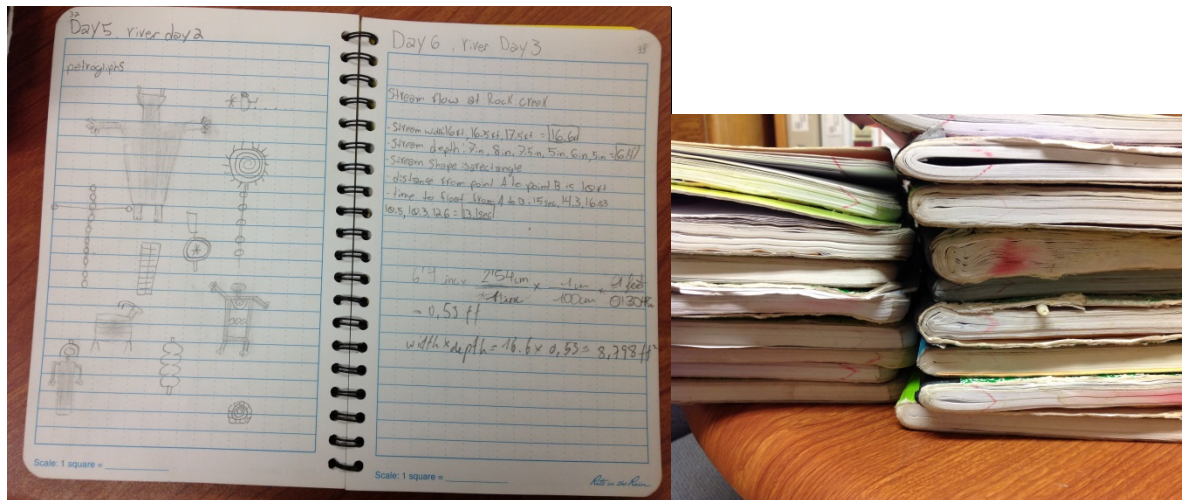 37
Day 5, river day 2
petrogliphs
Scale: 1 square =
38
Day 6, river Day 3
Stream flow at Rock creek
- Stream width: 16ft, 16.5ft, 17.5ft = 16.6ft
- Stream depth: 7in, 8in, 7.5in, 5in, 6in, 5in =
- Stream shape is rectangle
- distance from point A to point B is 10ft
- time to float from A to B: 15sec, 14.3, 16.53
10.5, 10.3, 12.6 = 13.1sec
6'4 inc x 2'54cm / 1 inc x 1m / 100cm x 1 feet
= 0,53 ft
width x depth = 16.6 x 0,53 = 8,798 ft²
Scale: 1 square =
Rite in the Rain